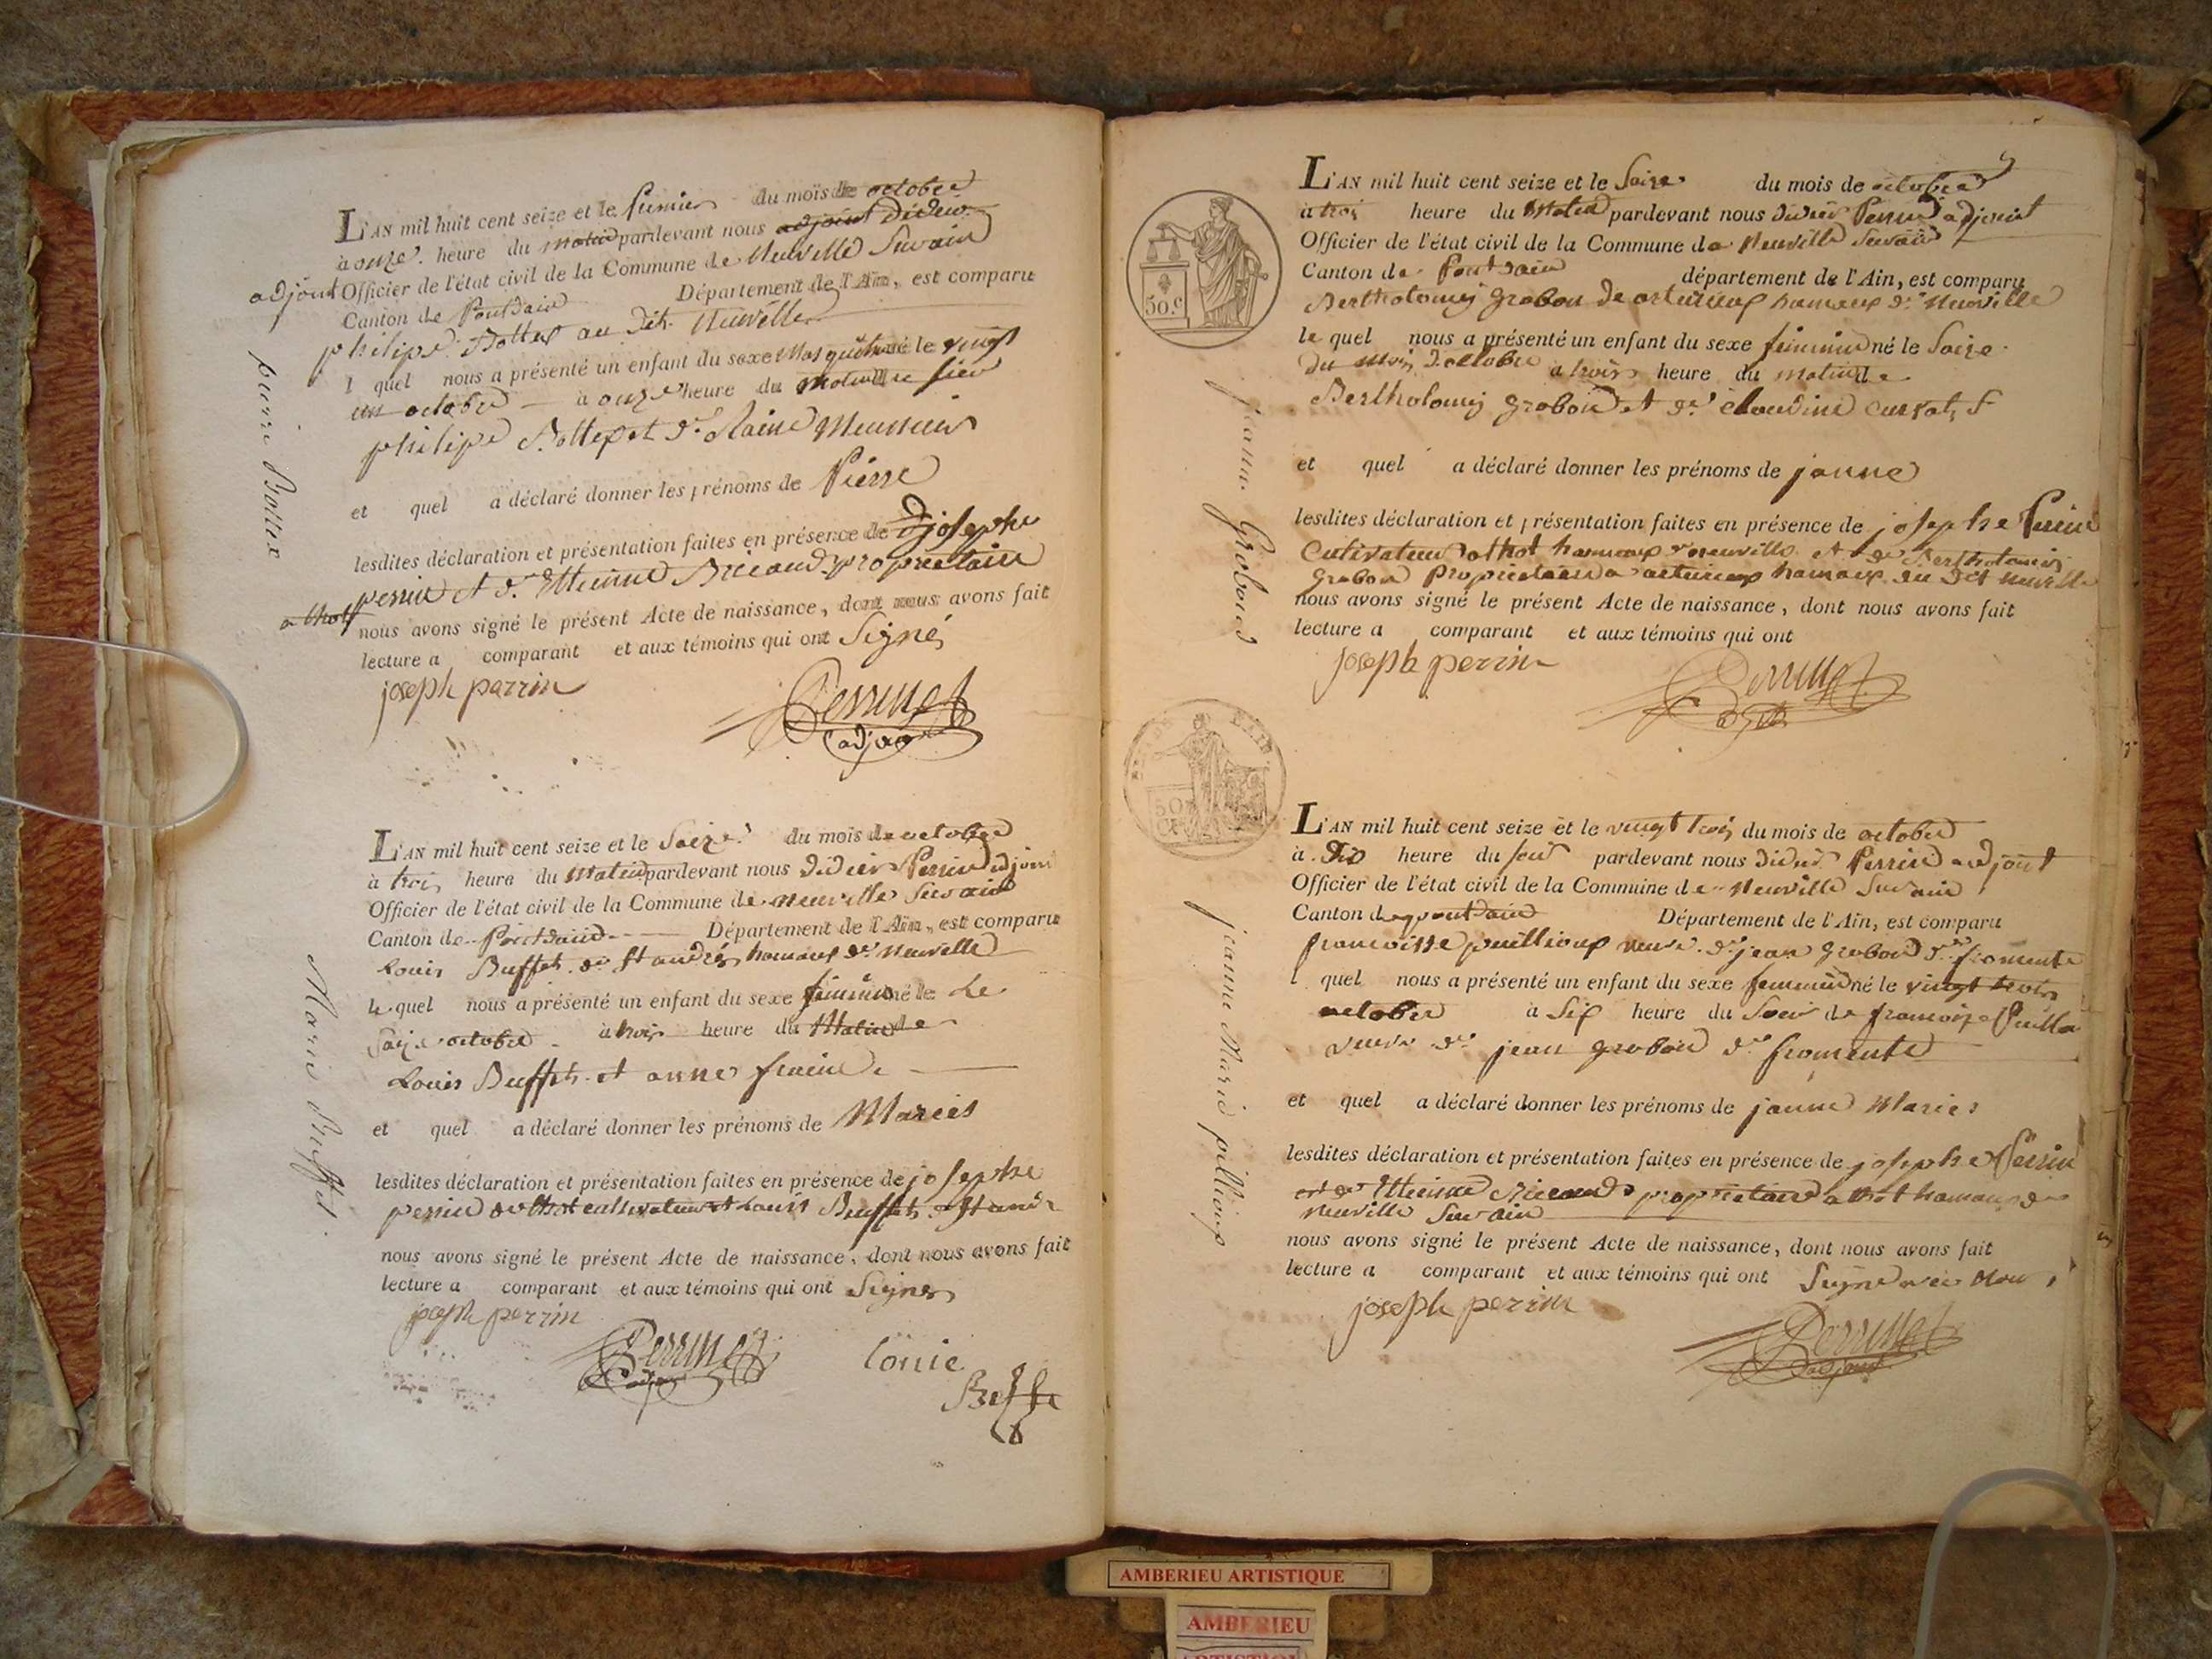 L'AN mil huit cent seize et le premier du mois de octobre
à onze heure du matin pardevant nous adjoint didier
adjoint Officier de l'état civil de la Commune de Neuville Survain
Canton de Pontdain Département de l'Ain, est comparu
philipe Bottex au dit Neuville
l quel nous a présenté un enfant du sexe Masquelin né le vingt
un octobre à onze heure du matin de sieur
philipe Bottex et de Raine Meunier
et quel a déclaré donner les prénoms de Pierre
lesdites déclaration et présentation faites en présence de Josephe
perrin et de Etienne Bricaud propriétaire
a thol nous avons signé le présent Acte de naissance, dont nous avons fait
lecture a comparant et aux témoins qui ont Signé
joseph perrin
Perrinet
adjoint
pierre Bottex
L'AN mil huit cent seize et le Saize du mois de octobre
à trois heure du Matin pardevant nous didier Perrin adjoint
Officier de l'état civil de la Commune de neuville Survain
Canton de Pontdain Département de l'Ain, est comparu
Louis Buffet de St andré hamaux de Neuville
le quel nous a présenté un enfant du sexe féminin né le Le
Saize octobre à trois heure du Matin de
Louis Buffet et anne
et quel a déclaré donner les prénoms de Maries
lesdites déclaration et présentation faites en présence de josephe
perrin de thol cultivateur et Louis Buffet St andré
nous avons signé le présent Acte de naissance, dont nous avons fait
lecture a comparant et aux témoins qui ont Signes
joseph perrin
Perrinet
adjoint
Louie
Buffe
Marie Buffet
L'AN mil huit cent seize et le Saize du mois de octobre
à trois heure du Matin pardevant nous didier Perrin adjoint
Officier de l'état civil de la Commune de Neuville Survain
Canton de Pontdain département de l'Ain, est comparu
Bertholomy grobon de arturieux hamaux de Neuville
le quel nous a présenté un enfant du sexe féminin né le Saize
du mois d'octobre à trois heure du matin de
Bertholomy grobon et de Claudine
et quel a déclaré donner les prénoms de janne
lesdites déclaration et présentation faites en présence de josephe Perrin
Cultivateur a thol hamaux de neuville et de Bertholomy
grobon Propriétaire a arturieux hamaux du dit neuville
nous avons signé le présent Acte de naissance, dont nous avons fait
lecture a comparant et aux témoins qui ont
joseph perrin
Perrinet
adjt
janne Grobon
50.c
L'AN mil huit cent seize et le vingt trois du mois de octobre
à Dix heure du soir pardevant nous didier Perrin adjoint
Officier de l'état civil de la Commune de Neuville Survain
Canton de pontdain Département de l'Ain, est comparu
francoisse puillioux veuve de jean grobon de fromente
l quel nous a présenté un enfant du sexe feminin né le vingt trois
octobre à Six heure du Soir de francoize
veuve de jean grobon de fromente
et quel a déclaré donner les prénoms de janne Maries
lesdites déclaration et présentation faites en présence de josephe Perrin
et de Etienne Bricaud propriétaire a thol hamaux de
neuville Survain
nous avons signé le présent Acte de naissance, dont nous avons fait
lecture a comparant et aux témoins qui ont Signe avec nous
joseph perrin
Perrinet
adjoint
jeanne Marie pillioux
AMBERIEU ARTISTIQUE
AMBERIEU
ARTISTIQUE